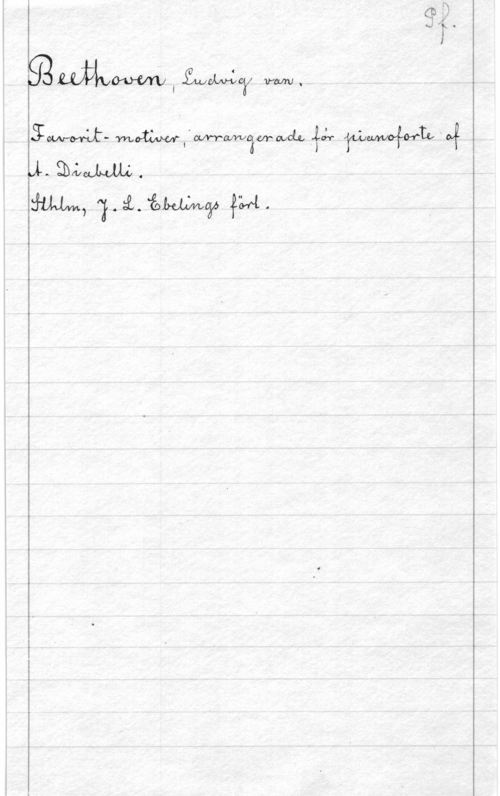 Pf.
Beethoven, Ludvig van.
Favorit-motiver, arrangerade för pianoforte af
A. Diabelli.
Sthlm, J. L. Ebelings förl.